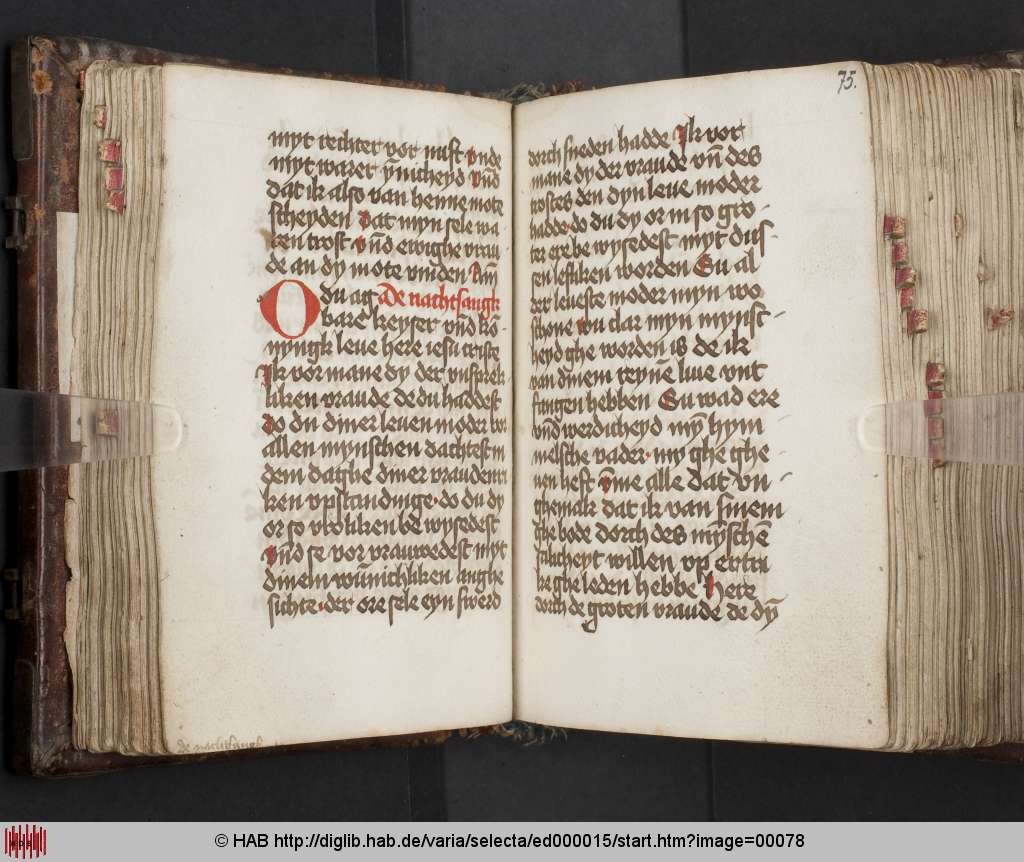 myt rechter vor nuft vnde
myt warer ynicheyd vnd
dat ik also van henne mote
scheyden dat myn sele wa
ren trost vnd ewighe vrau
de an dy mote vinden Am̄
O du ac De nachtsangk
bare keyser vnd kō
nyngk leue here iesu criste
Ik vormane dy der vnspreke
liken vraude de du haddest
do du diner leuen moder vor
allen mynschen dachtest in
dem daghe diner vraudenri
ken vpstandinge do du dy
or so vroliken be wysedest
vnd se vor vrauwedest myt
dinem wūnichliken anghe
sichte der ore sele eyn swerd
de nachtsangk
75.
dorch sneden hadde Ik vor
mane dy der vraude vn̄ des
trostes den dyn leue moder
hadde do du dy or in so gro
ter ere be wysedest myt dus
sen lefliken worden Su al
der leueste moder myn wo
schone vn̄ clar myn mynsc
heyd ghe worden is de ik
van dinem reynē liue vnt
fangen hebben Su wad ere
vnd werdicheyd mȳ hym
melsche vader my ghe ghe
uen heft vm̄me alle dat vn
ghemak dat ik van sinem
ghe bode dorch des mȳschē
salicheyt willen vp ertri
ke ghe leden hebbe Here
dorch de groten vraude de dȳ
© HAB http://diglib.hab.de/varia/selecta/ed000015/start.htm?image=00078